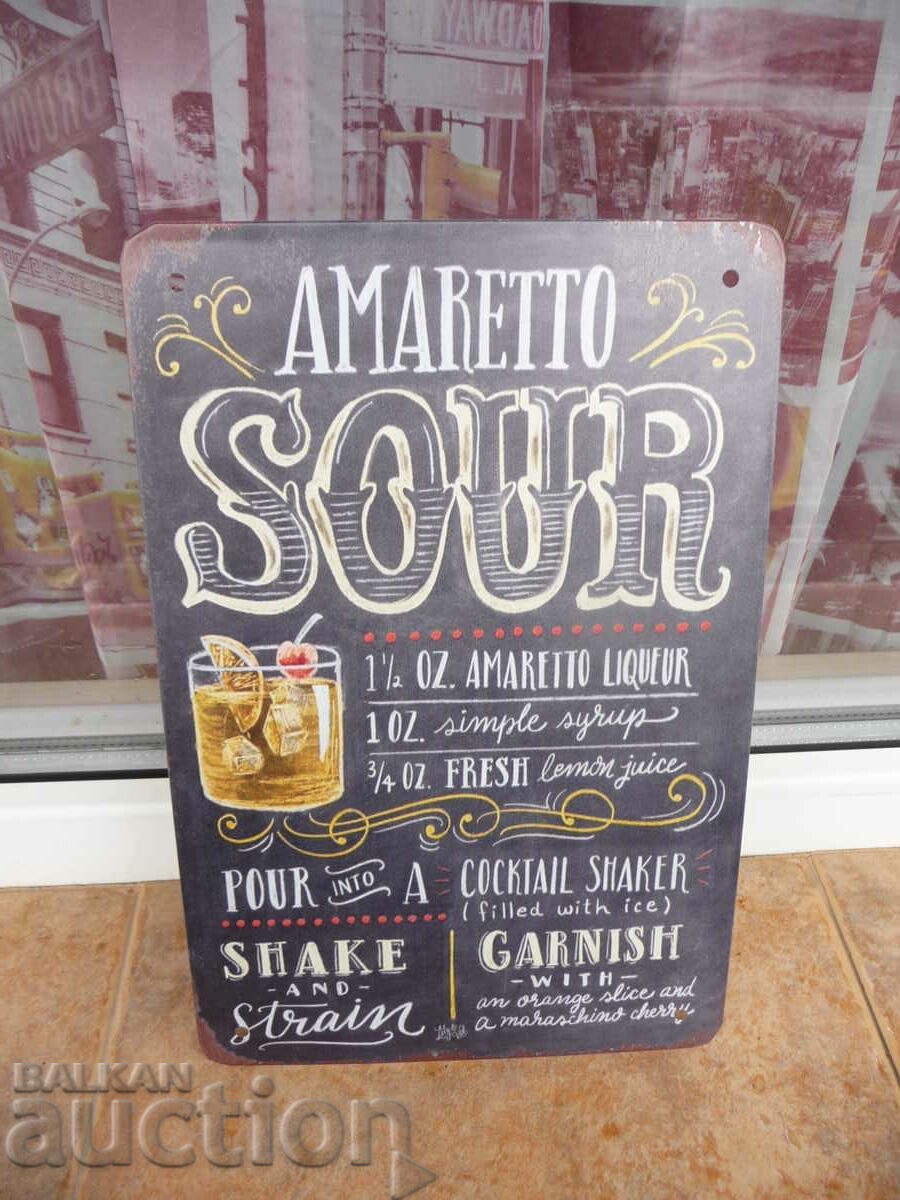 BROADWAY
AMARETTO
SOUR
1 1/2 OZ. AMARETTO LIQUEUR
1 OZ. simple syrup
3/4 OZ. FRESH lemon juice
POUR INTO A COCKTAIL SHAKER
(filled with ice)
SHAKE
-AND-
strain
GARNISH
-WITH-
an orange slice and
a maraschino cherry
BALKAN
auction